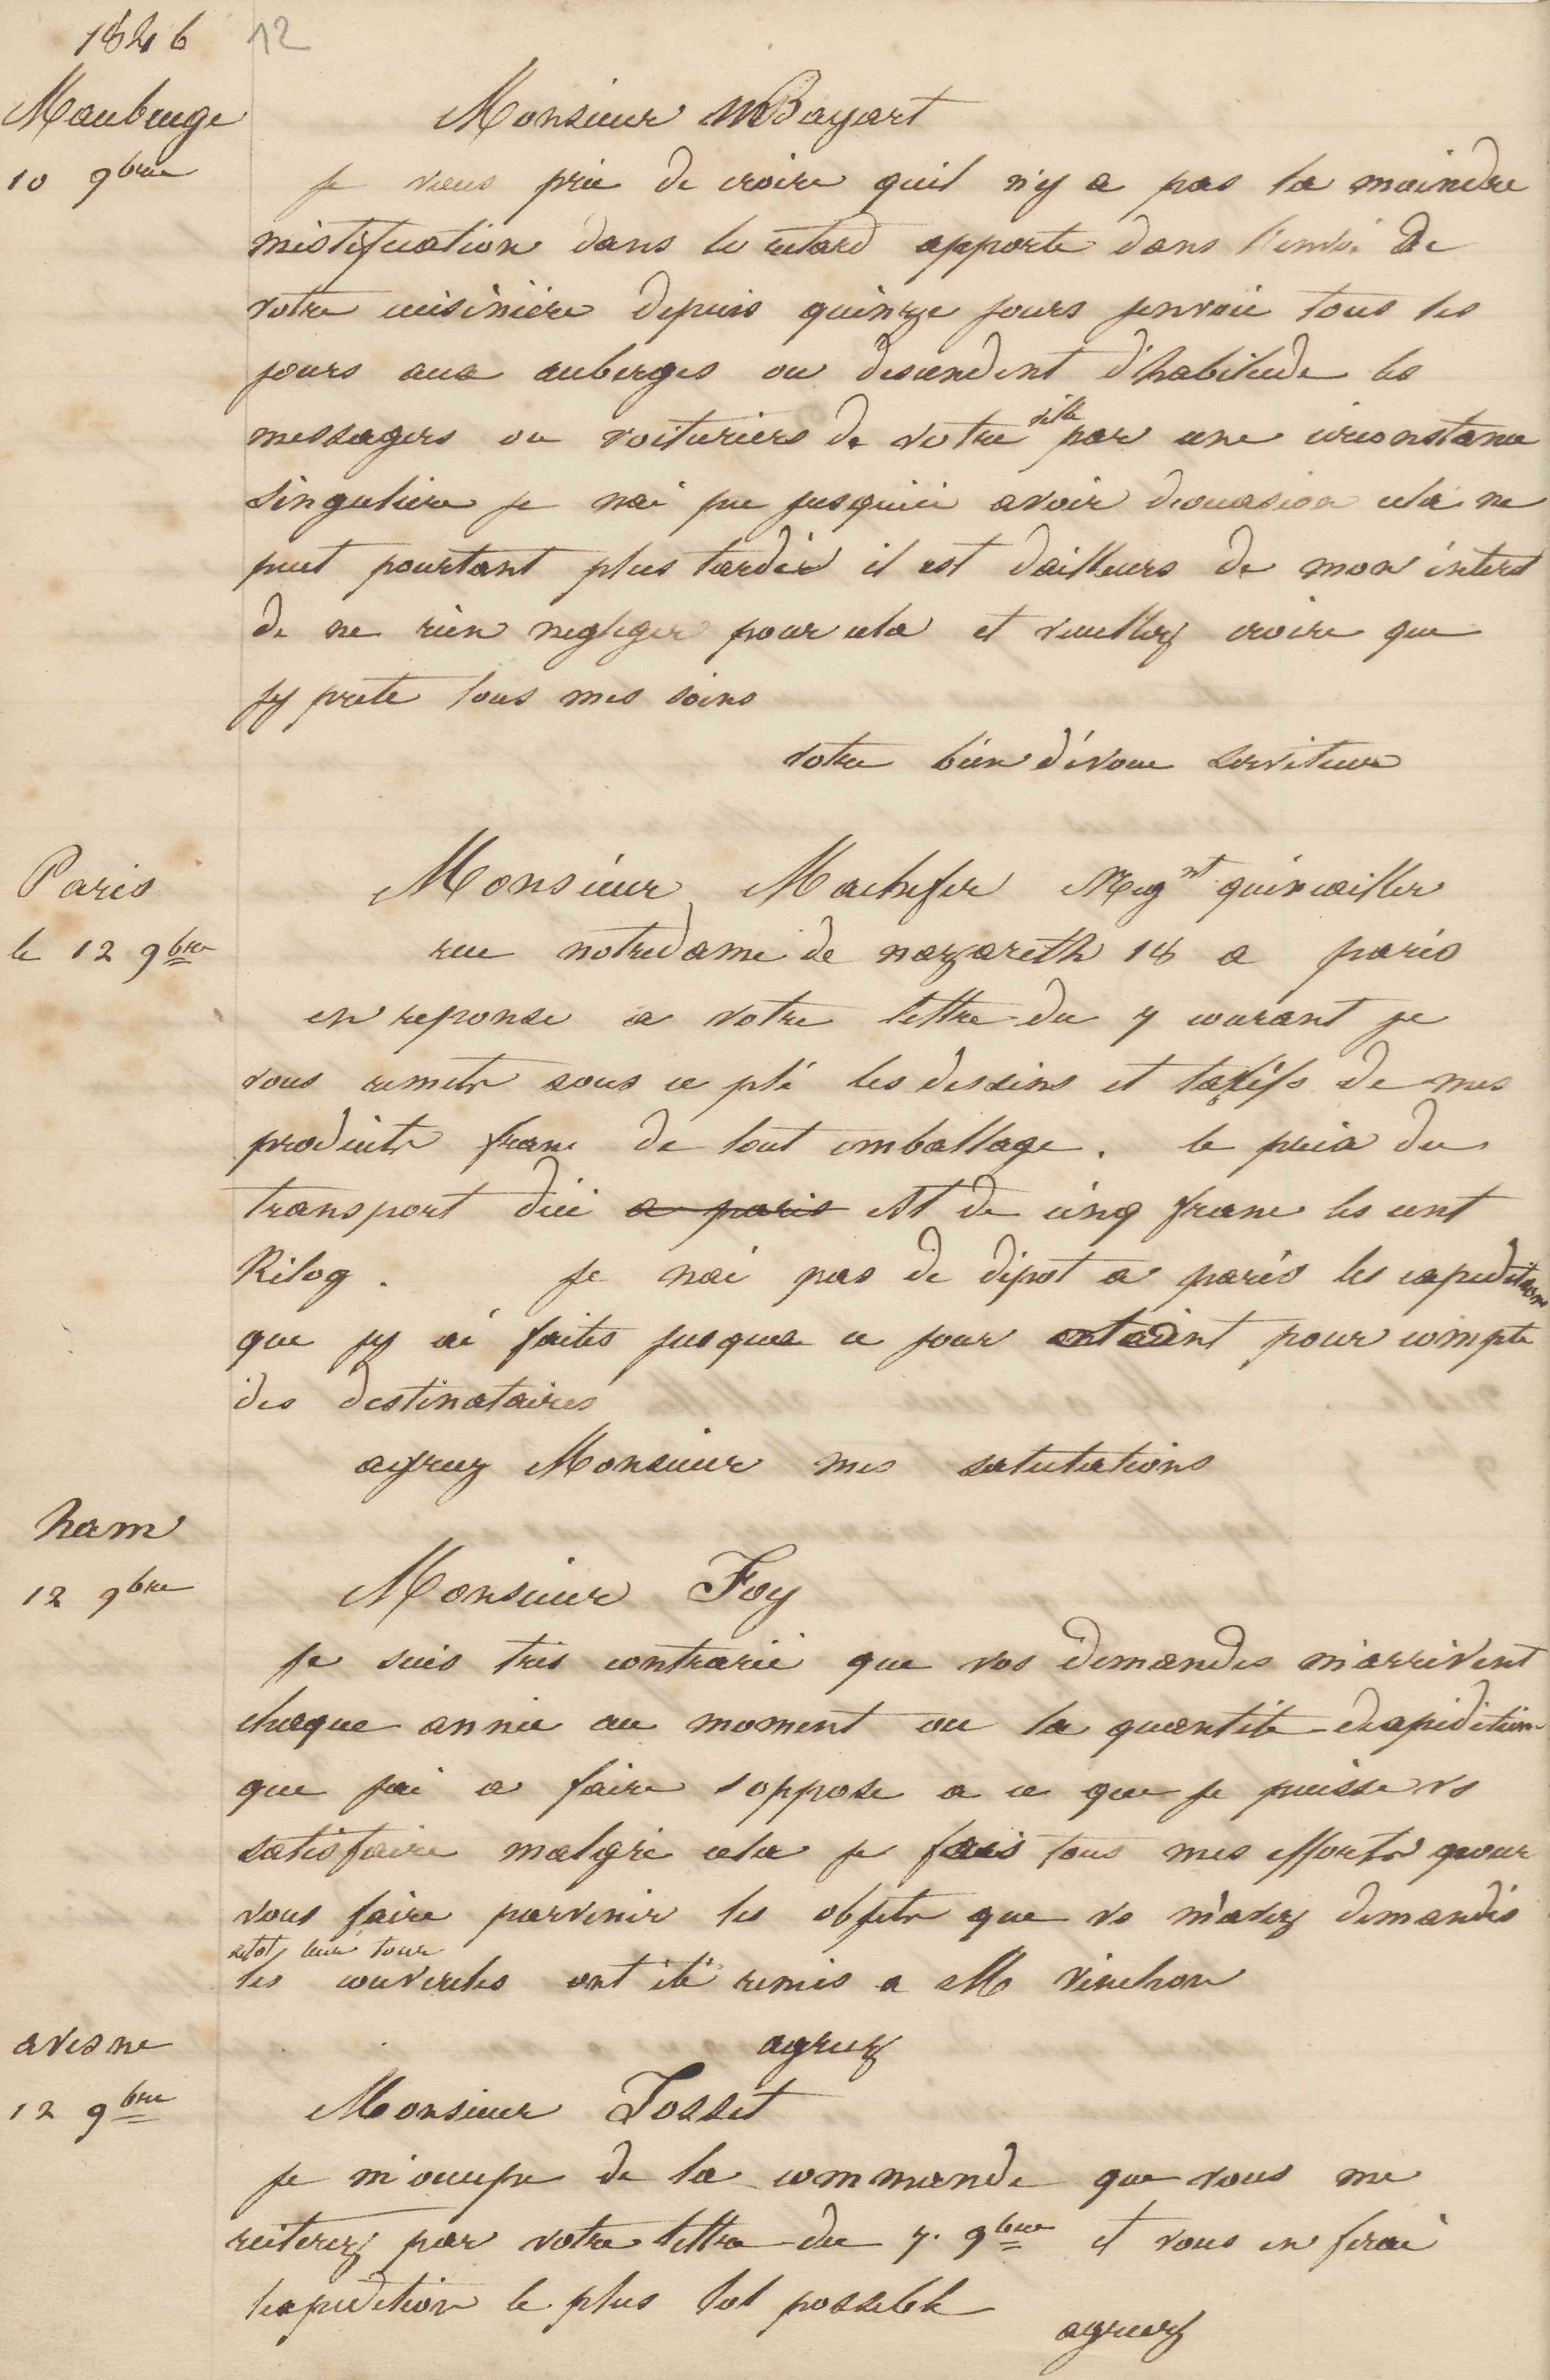 1846 12
Maubeuge
Monsieur Bayart
10 9bre
je vous prie de croire quil n'y a pas la moindre
mistification dans le retard apporte dans l'envoi de
votre cuisinière depuis quinze jours jenvoie tous les
jours aux auberges ou descendent d'habitude les
messagers ou voituriers de votre ville par une circonstance
singuliere je nai pu jusquici avoir doccasion cela ne
peut pourtant plus tarder il est dailleurs de mon interet
de ne rien negliger pour cela et veuillez croire que
jy prete tous mes soins
votre bien dévoue serviteur
Paris
Monsieur Machefer Negnt quincailler
le 12 9bre
rue notredame de nazareth 18 a paris
en reponse a votre lettre du 7 courant je
vous remets sous ce pli les dessins et tarifs de mes
produits franc de tout emballage. le prix du
transport dici a paris est de cinq franc les cent
Kilog. je nai pas de dépot a paris les expeditions
que jy ai faites jusqua ce jour etaient pour compte
des destinataires
agreez Monsieur mes salutations
ham
12 9bre
Monsieur Foy
je suis tres contrarié que vos demandes m'arrivent
chaque année au moment ou la quantité dexpédition
que jai a faire soppose a ce que je puisse vs
satisfaire malgré cela je fais tous mes efforts pour
vous faire parvenir les objets que vs m'avez demandés
leur tour
les couvercles ont été remis a M Vinchon
agreez
avesne
12 9bre
Monsieur Josset
je m'occupe de la commande que vous me
reiterez par votre lettre du 7. 9bre et vous en ferai
lexpedition le plus tot possible
agreez